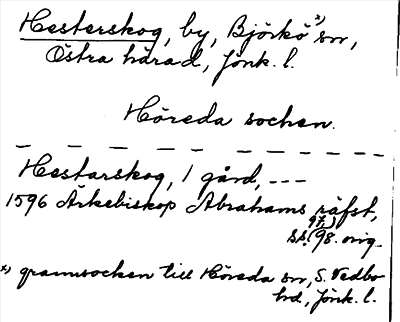 Hesterskog, by, Björkö x) sn,
Östra härad, Jönk. l.
Höreda socken.
Hestarskog, 1 gård, ---
1596 Ärkebiskop Abrahams räfst,
97,)
ss. (98. orig.
x) grannsocken till Höreda sn, S. Vedbo
hd, Jönk. l.